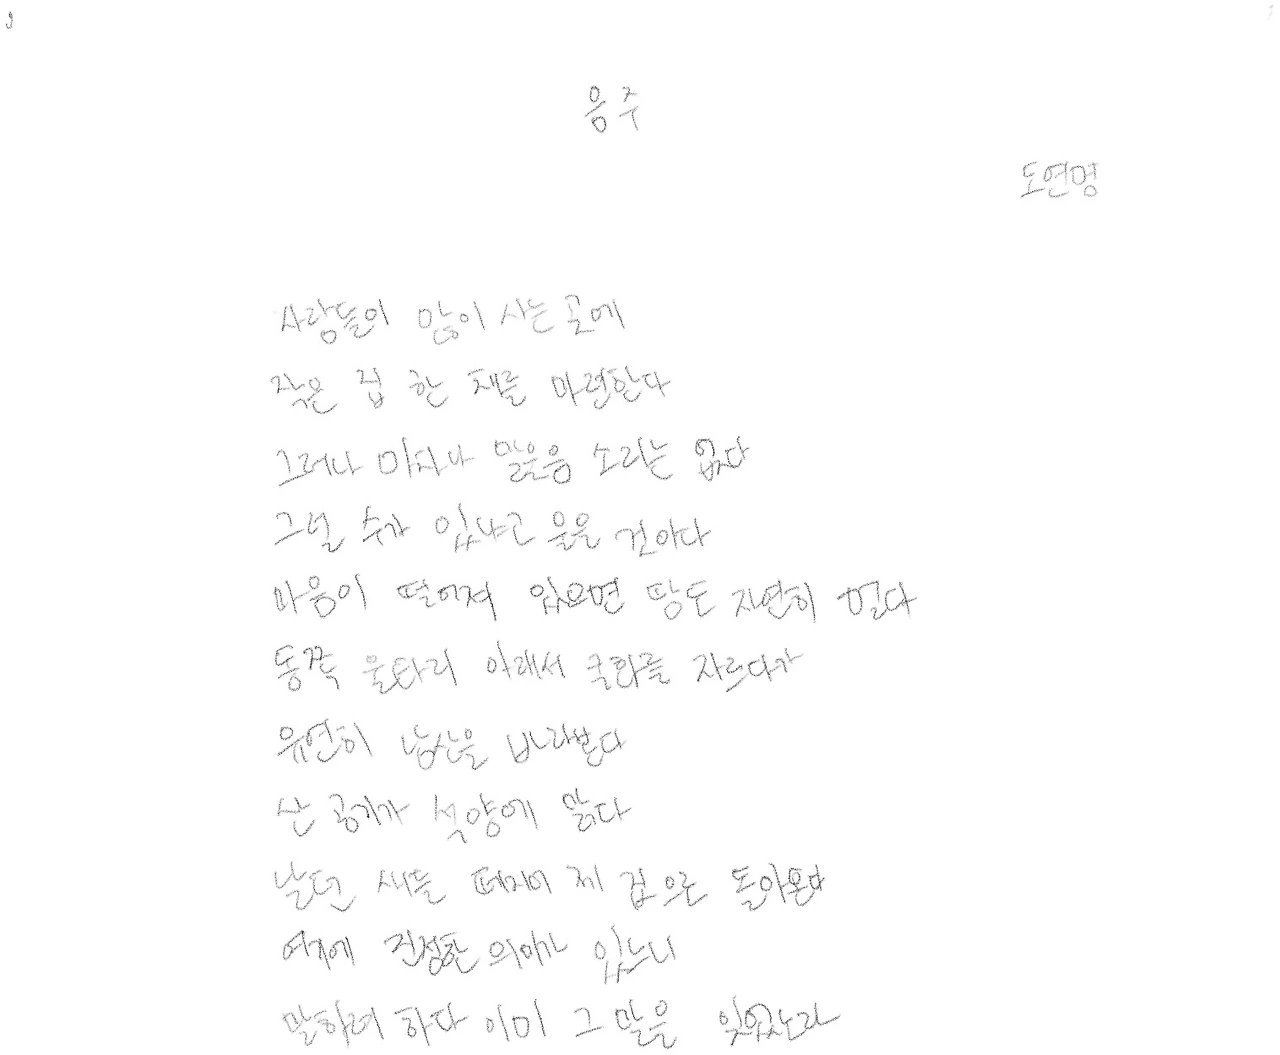 음주
도연명
사람들이 많이 사는 곳에
작은 집 한 채를 마련한다
그러나 마차나 말울음 소리는 없다
그럴 수가 있냐고 물을 것이다
마음이 떨어져 있으면 땅도 자연히 멀다
동쪽 울타리 아래서 국화를 자르다가
유연히 남산을 바라본다
산 공기가 석양에 맑다
날던 새들 떼지어 제 집으로 돌아온다
여기에 진정한 의미가 있느니
말하려 하다 이미 그 말을 잊었노라